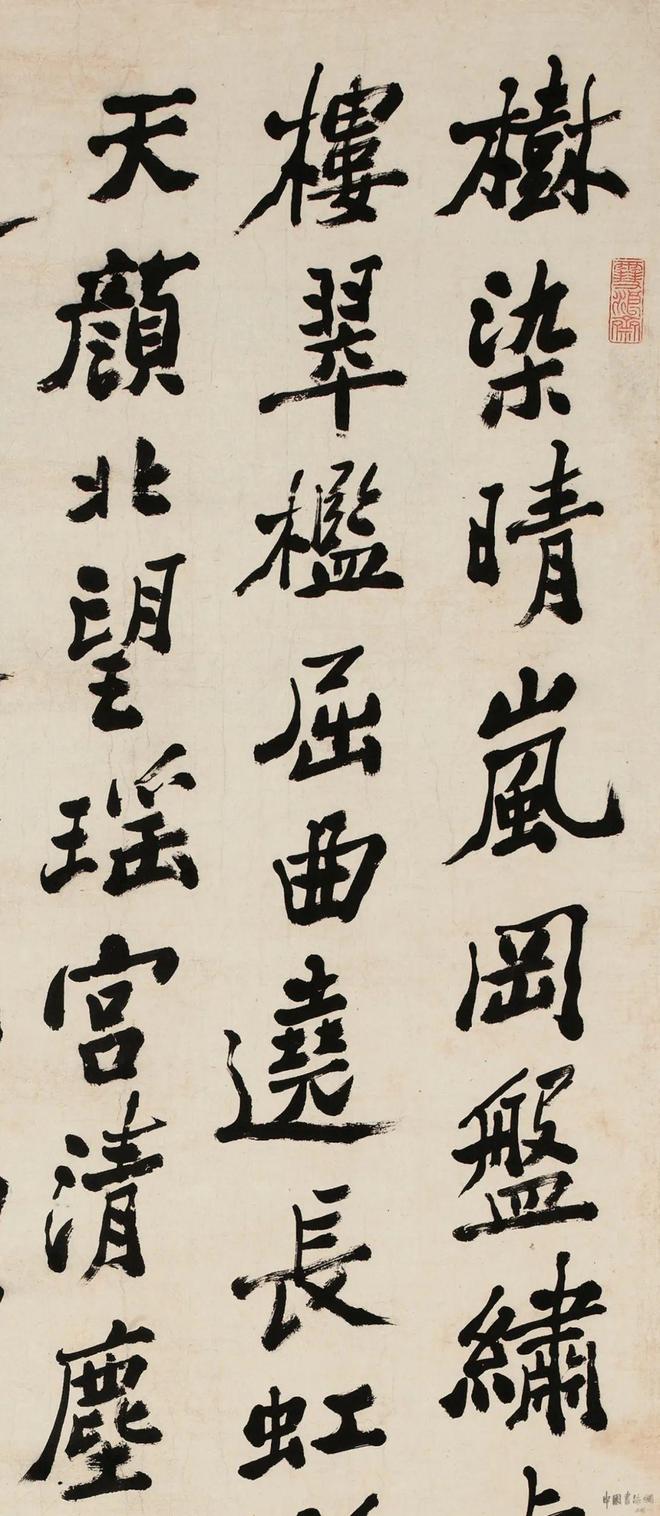 樹染晴嵐岡盤繡
樓翠檻屈曲遶長虹
天顏北望瑤宮清塵
中國書法網